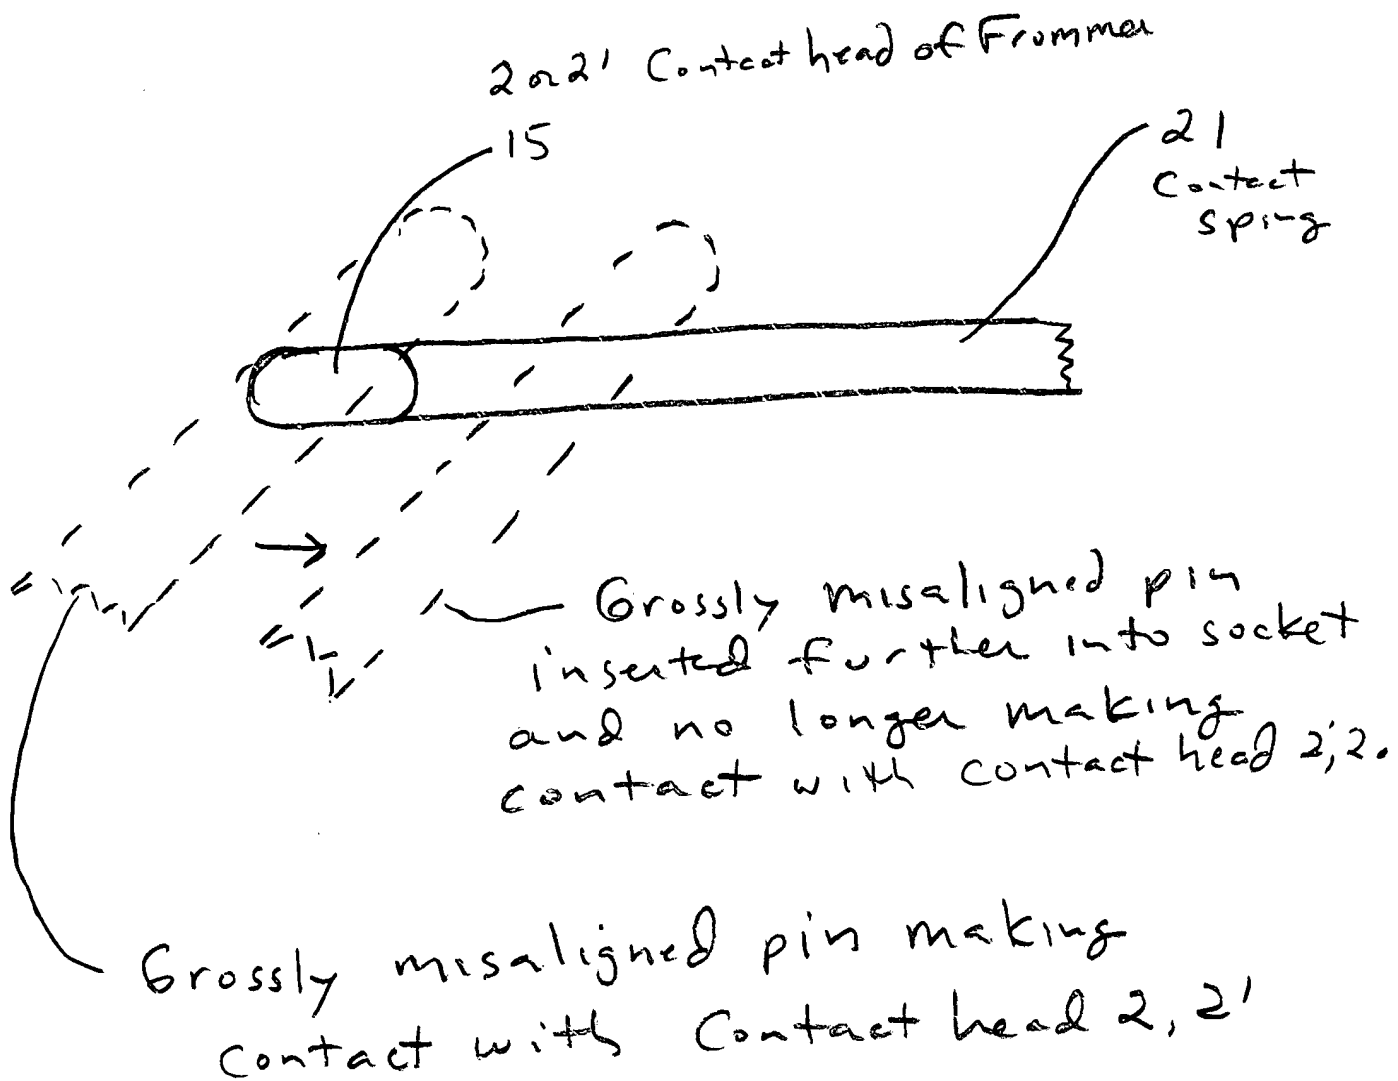 2 or 2' Contact head of Frommer
15
21
Contact
sping
Grossly misaligned pin
inserted further into socket
and no longer making
contact with contact head 2', 2.
Grossly misaligned pin making
contact with Contact head 2, 2'